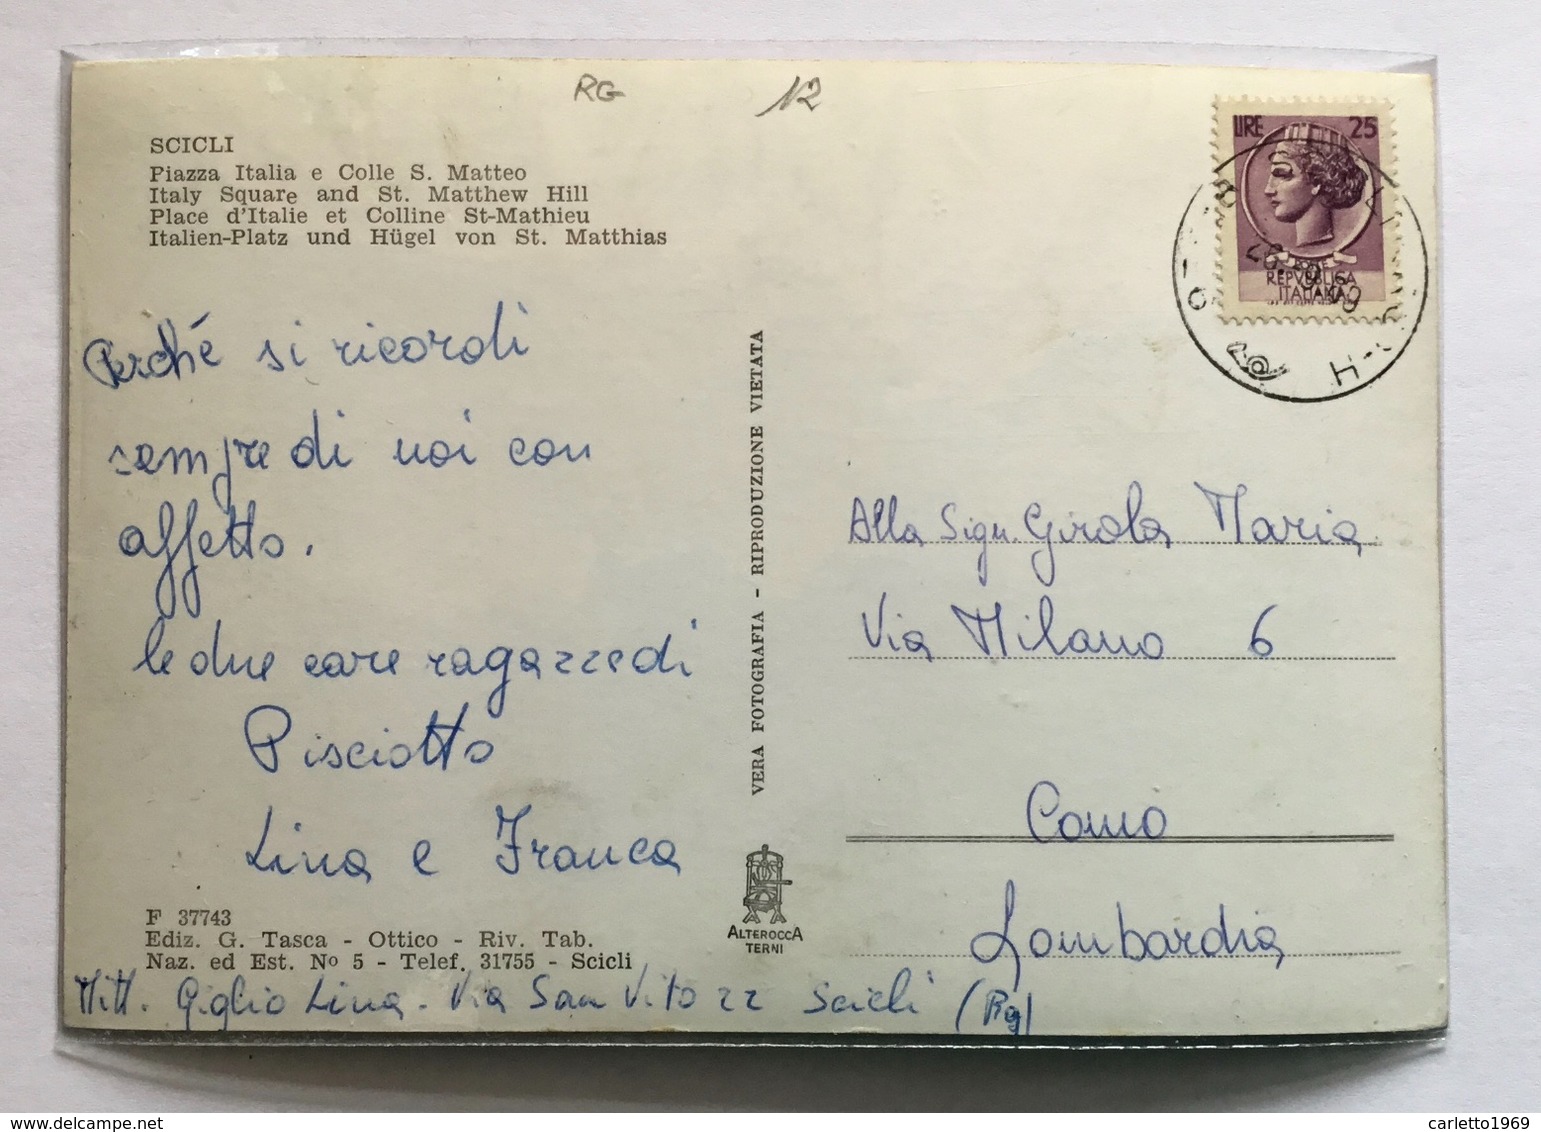 RG 12
SCICLI
Piazza Italia e Colle S. Matteo
Italy Square and St. Matthew Hill
Place d'Italie et Colline St-Mathieu
Italien-Platz und Hügel von St. Matthias
Perché si ricordi
sempre di noi con
affetto.
le due care ragazze di
Pisciotto
Lina e Franca
F 37743
Ediz. G. Tasca - Ottico - Riv. Tab.
Naz. ed Est. No 5 - Telef. 31755 - Scicli
Mitt. Giglio Lina - Via San Vito 22 Scicli (Rg)
VERA FOTOGRAFIA - RIPRODUZIONE VIETATA
ALTEROCCA
TERNI
LIRE 25
POSTE
REPVBBLICA
ITALIANA
Alla Sign. Girola Maria
Via Milano 6
Como
Lombardia
carletto1969